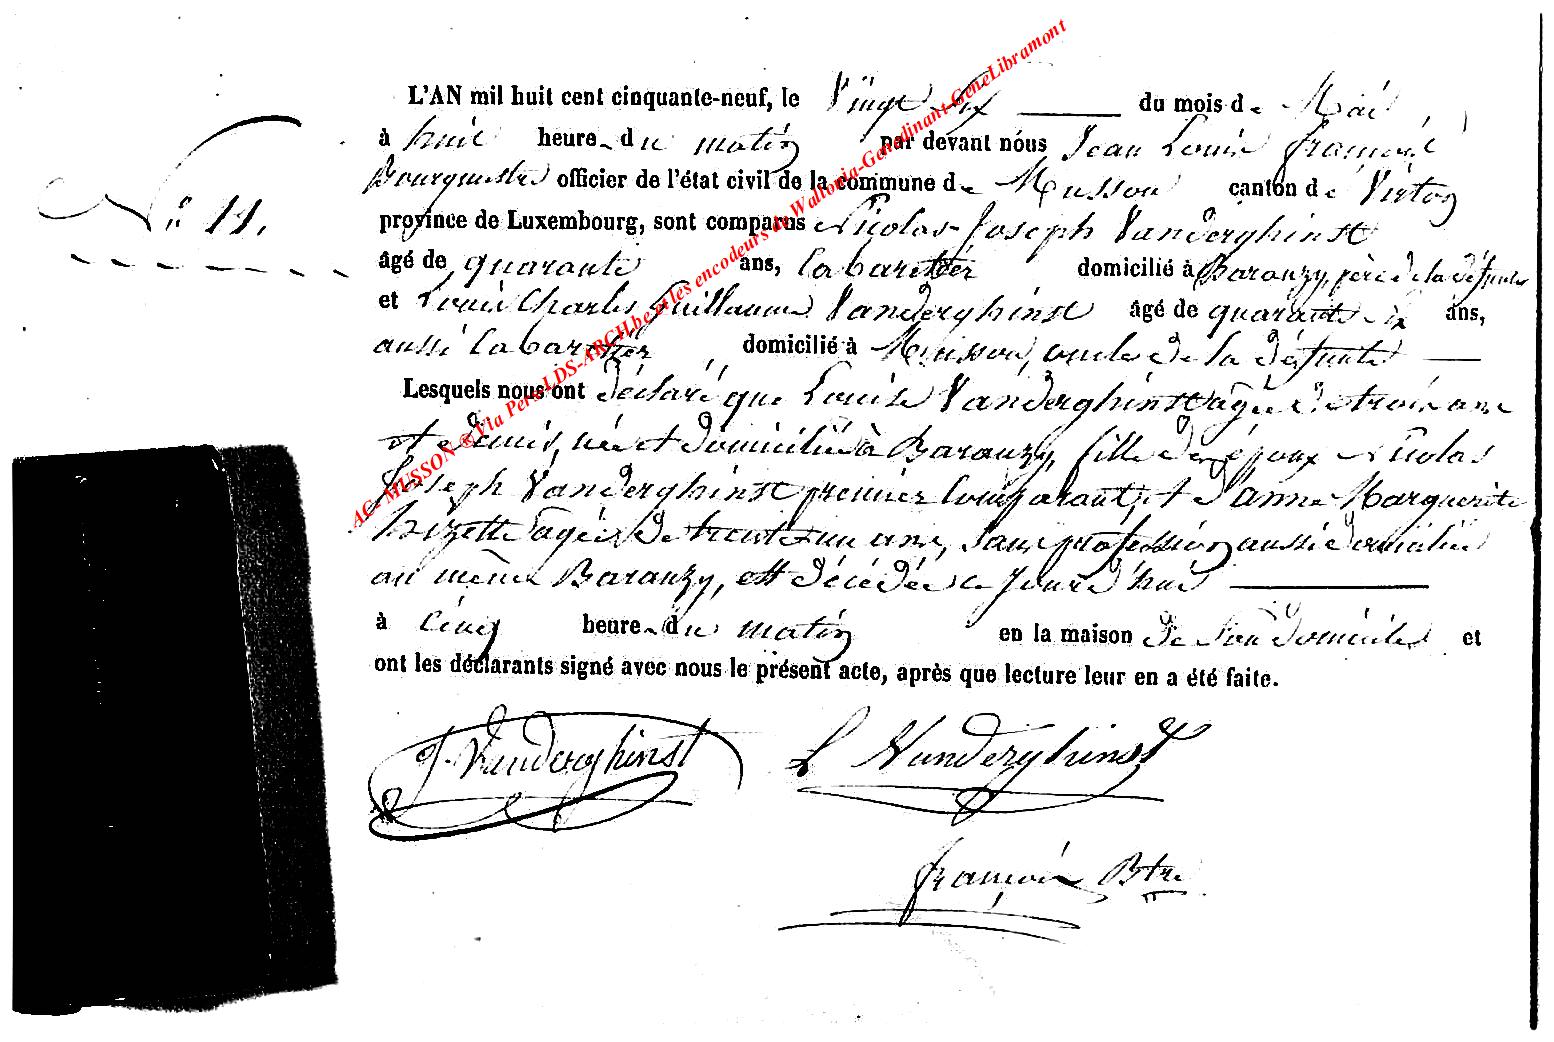 L'AN mil huit cent cinquante-neuf, le Vingt six du mois de Mai,
à huit heures du matin par devant nous Jean Louis françois
Bourgmestre officier de l'état civil de la commune de Musson canton de Virton
N° 11.
province de Luxembourg, sont comparus Nicolas-Joseph Vanderghinst
âgé de quarante ans, Cabaretier domicilié à Baranzy, père de la défunte
et Louis Charles Guillaume Vanderghinst âgé de quarante six ans,
aussi Cabaretier, domicilié à Musson, oncle de la défunte
Lesquels nous ont déclaré que Louise Vanderghinst agée de trois ans
et demis, née et domiciliée à Baranzy, fille des époux Nicolas
Joseph Vanderghinst premier Comparant, et d'anne Marguerite
agée de trente un ans, sans profession aussi domiciliée
au même Baranzy, est décédée ce Jourd'hui
à cinq heures du matin en la maison de son domicile et
ont les déclarants signé avec nous le présent acte, après que lecture leur en a été faite.
J. Vanderghinst L Vanderghinst
françois Btre
AC-MUSSON ® Via Pers LDS-ARCH.be et les encodeurs de Wallonia-Genedinant-GeneLibramont